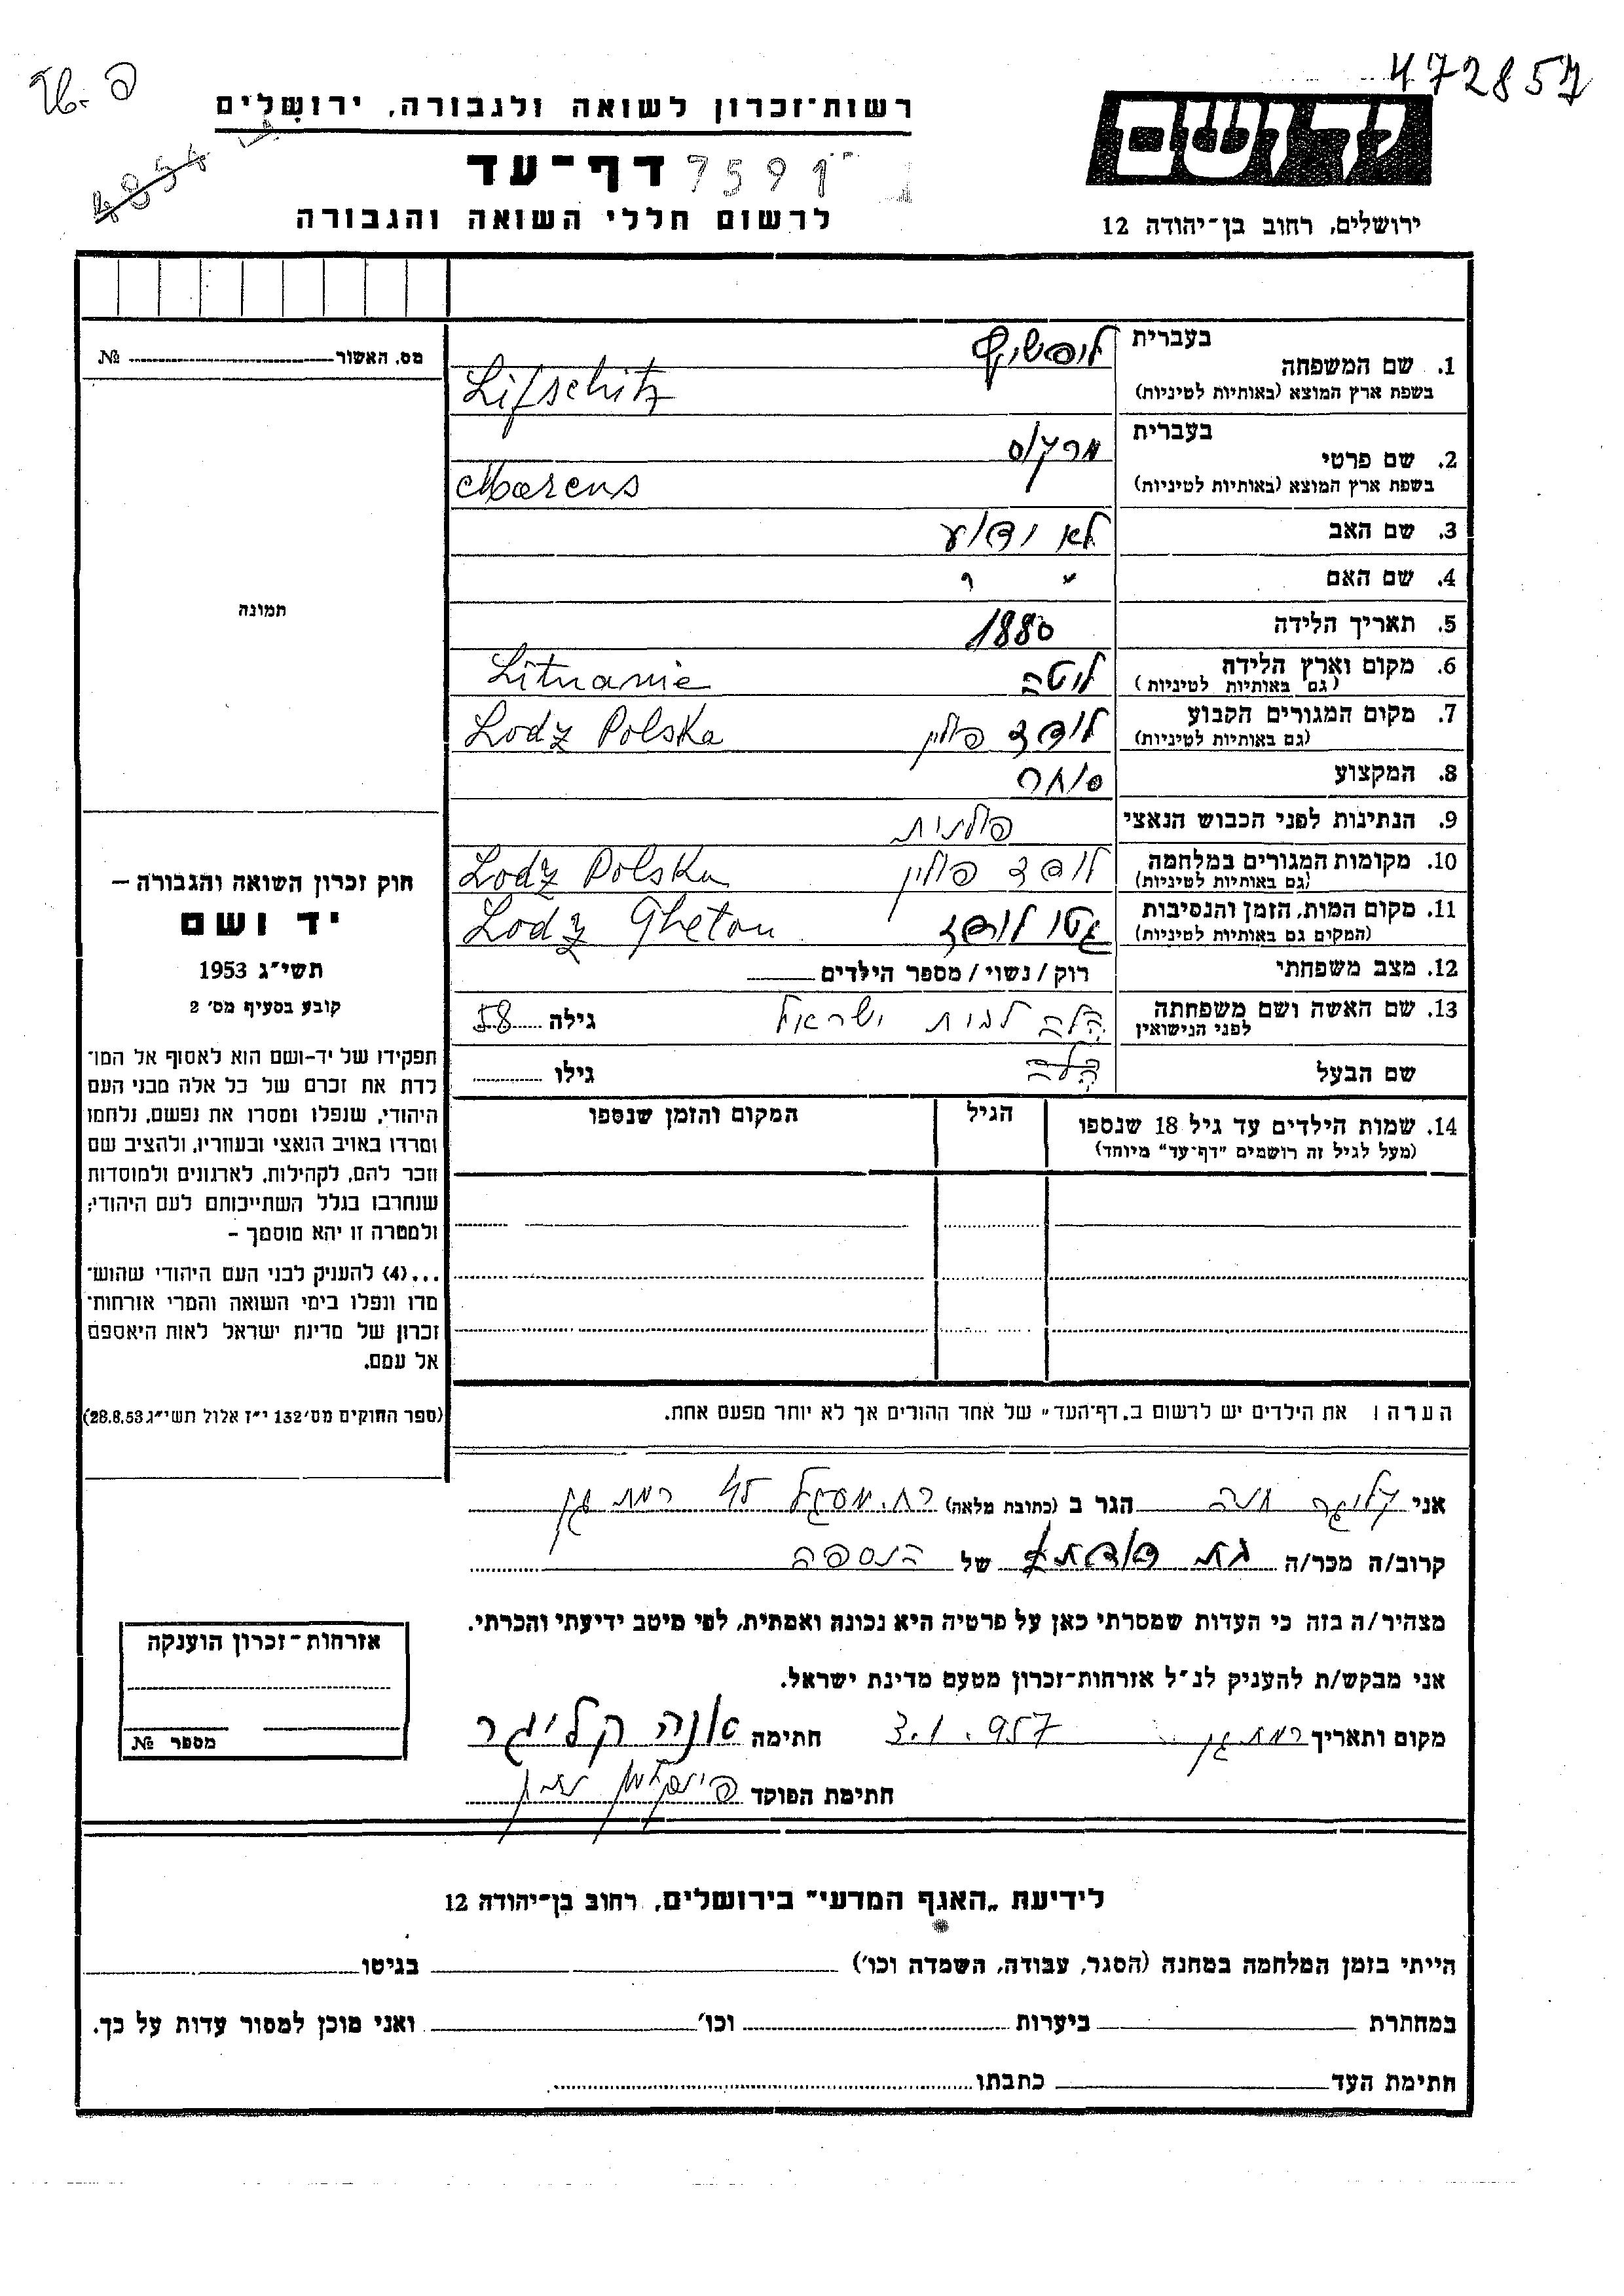 472857
פ.
רשות־זכרון לשואה ולגבורה, ירושלים
יד ושם
דף־עד 7591
4854
לרשום חללי השואה והגבורה
ירושלים, רחוב בן־יהודה 12
בעברית ליפשיץ
1. שם המשפחה
בשפת ארץ המוצא (באותיות לטיניות) Lifschitz
מס. האשור № 
בעברית מרקוס
2. שם פרטי
בשפת ארץ המוצא (באותיות לטיניות) Marcus
3. שם האב לא ידוע
4. שם האם " "
תמונה
5. תאריך הלידה 1880
6. מקום וארץ הלידה ליטה Lituanie
(גם באותיות לטיניות)
7. מקום המגורים הקבוע לודז פולין Lodz Polska
(גם באותיות לטיניות)
8. המקצוע סוחר
9. הנתינות לפני הכבוש הנאצי פולנית
10. מקומות המגורים במלחמה לודז פולין Lodz Polska
(גם באותיות לטיניות)
11. מקום המות, הזמן והנסיבות גטו לודז Lodz Ghetou
(המקום גם באותיות לטיניות)
12. מצב משפחתי רוק / נשוי / מספר הילדים
13. שם האשה ושם משפחתה הלה לבית ישראל גילה 58
לפני הנישואין
שם הבעל הלה גילו
14. שמות הילדים עד גיל 18 שנספו הגיל המקום והזמן שנספו
(מעל לגיל זה רושמים "דף־עד" מיוחד)
חוק זכרון השואה והגבורה —
יד ושם
תשי״ג 1953
קובע בסעיף מס׳ 2
תפקידו של יד-ושם הוא לאסוף אל המו־
לדת את זכרם של כל אלה מבני העם
היהודי, שנפלו ומסרו את נפשם, נלחמו
ומרדו באויב הנאצי ובעוזריו, ולהציב שם
וזכר להם, לקהילות, לארגונים ולמוסדות
שנחרבו בגלל השתייכותם לעם היהודי;
ולמטרה זו יהא מוסמך –
...(4) להעניק לבני העם היהודי שהוש־
מדו ונפלו בימי השואה והמרי אזרחות־
זכרון של מדינת ישראל לאות היאספם
אל עמם.
(ספר החוקים מס׳ 132 י״ז אלול תשי״ג 28.8.53)
הערה: את הילדים יש לרשום ב„דף־העד״ של אחד ההורים אך לא יותר מפעם אחת.
אני קליגר חנה הגר ב (כתובת מלאה) רח. מעגל 45 רמת גן
קרוב/ה מכר/ה בת דודתו של הנספה
מצהיר/ה בזה כי העדות שמסרתי כאן על פרטיה היא נכונה ואמתית, לפי מיטב ידיעתי והכרתי.
אני מבקש/ת להעניק לנ״ל אזרחות־זכרון מטעם מדינת ישראל.
מקום ותאריך רמת גן 3.1.957 חתימה אנה קליגר
חתימת הפוקד
אזרחות־זכרון הוענקה
מספר №
לידיעת „האגף המדעי״ בירושלים, רחוב בן־יהודה 12
הייתי בזמן המלחמה במחנה (הסגר, עבודה, השמדה וכו׳) בגיטו
במחתרת ביערות וכו׳ ואני מוכן למסור עדות על כך.
חתימת העד כתבתו